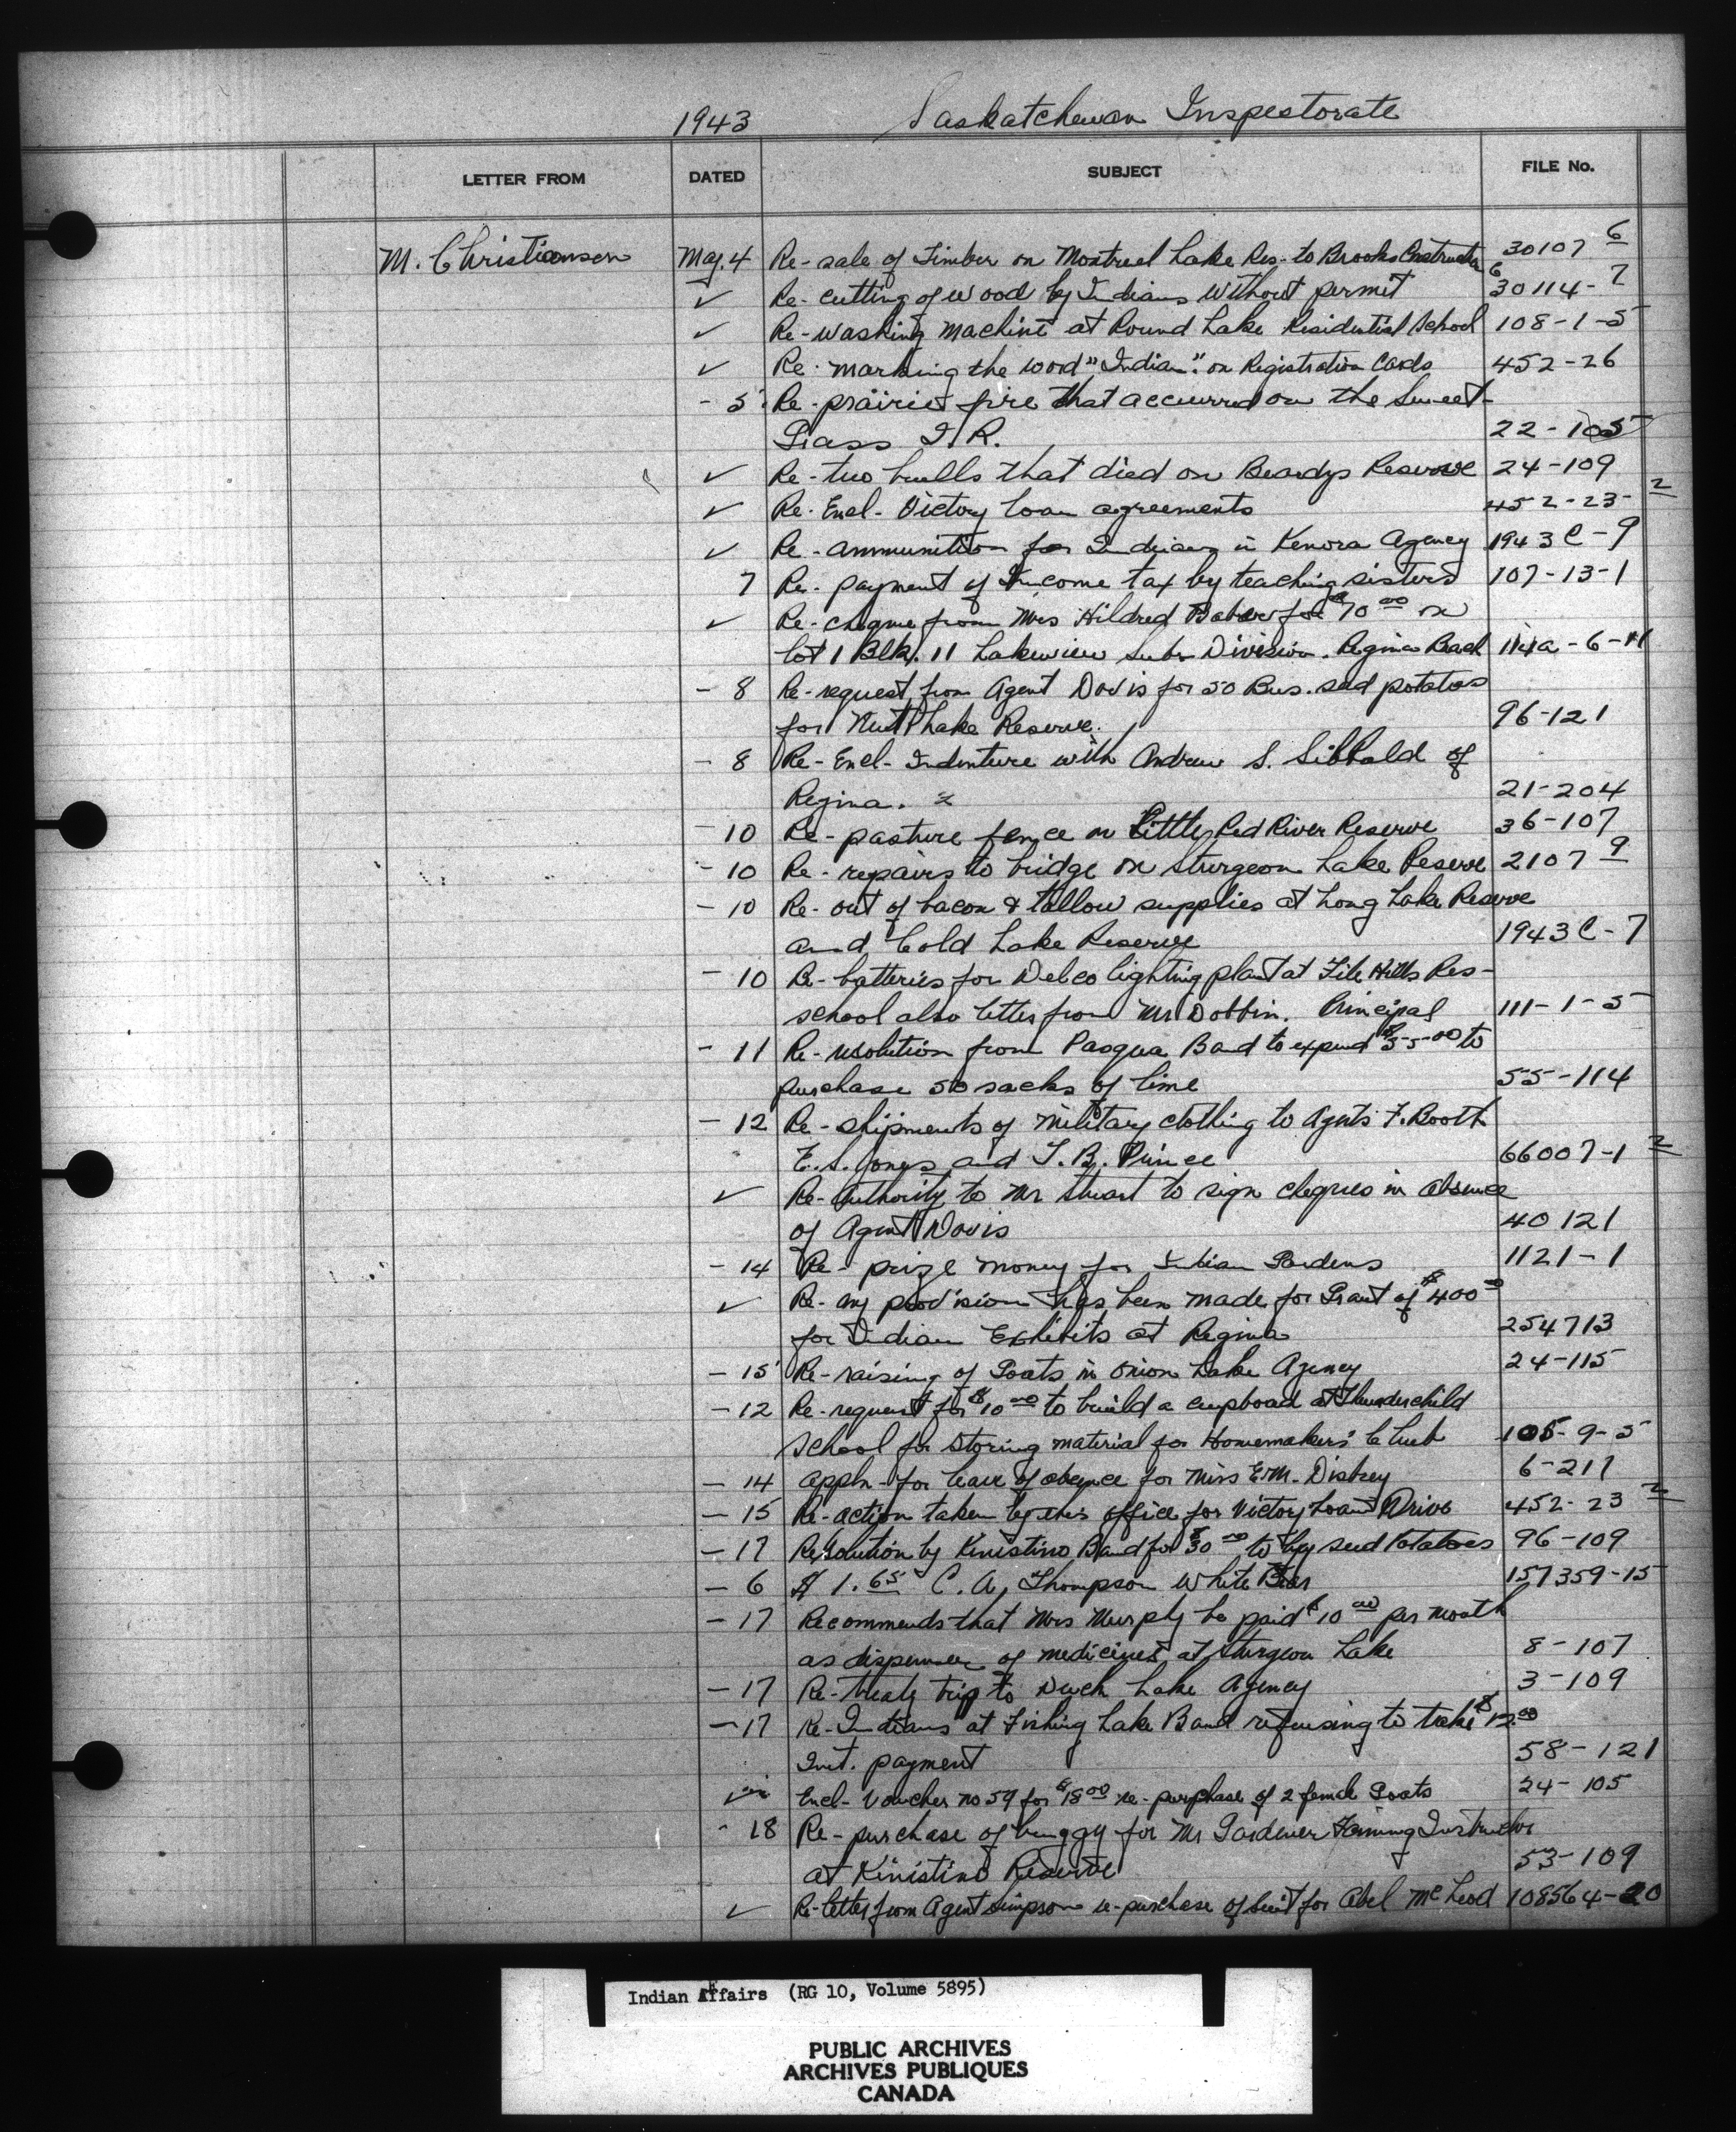 1943 Saskatchewan Inspectorate
LETTER FROM DATED SUBJECT FILE No.
M. Christianson May. 4 Re- sale of Timber on Montreal Lake Res- to Brooks Construction 30107 6
✓ Re- cutting of wood by Indians without permit 30114- 7
✓ Re- washing machine at Round Lake Residential School 108-1-5
✓ Re- marking the word "Indian" on Registration Cards 452-26
- 5 Re- prairie fire that occurred on the Sweet-
Grass I. R. 22-105
✓ Re- two bulls that died on Beardys Reserve 24-109
✓ Re- Encl- Victory Loan agreements 452-23- 2
✓ Re- ammunition for Indians in Kenora Agency 1943 C-9
7 Re- payment of Income tax by teaching sisters 107-13-1
✓ Re- cheque from Mrs Hildred for $70 00 on
lot 1 Blk. 11 Lakeview Sub Division. Regina Beach 114a-6-11
- 8 Re- request from Agent Davis for 50 Bus. seed potatoes
for Nut Lake Reserve. 96-121
- 8 Re- Encl- Indenture with Andrew S. Sibbald of
Regina. 21-204
- 10 Re- pasture fence on Little Red River Reserve 36-107
- 10 Re- repairs to bridge on Sturgeon Lake Reserve 2107 9
- 10 Re- out of bacon & tallow supplies at Long Lake Reserve
and Cold Lake Reserve 1943 C-7
- 10 Re- batteries for Delco lighting plant at File Hills Res-
school also letter from Mr Dobbin. Principal 111-1-5
- 11 Re- resolution from Pasqua Band to expend $55 00 to
purchase 50 sacks of lime 55-114
- 12 Re- shipments of military clothing to Agents F. Booth
E. S. Jones and J. B. Prince 66007-1 2
✓ Re- Authority to Mr Stuart to sign cheques in absence
of Agent Davis 40 121
- 14 Re- prize money for Indian Gardens 1121-1
✓ Re- any provision has been made for Grant of $400 00
for Indian Exhibits at Regina 254713
- 15 Re- raising of Goats in Onion Lake Agency 24-115
- 12 Re- request for $10 00 to build a cupboard at Thunderchild
School for storing material for Homemakers' Club 105-9-5
- 14 Appln- for leave of absence for Miss E.M. 6-211
- 15 Re- action taken by this office for Victory Loan Drive 452-23 2
- 17 Resolution by Kinistino Band for $30 00 to buy seed Potatoes 96-109
- 6 $ 1.65 C. A. Thompson White Bear 157359-15
- 17 Recommends that Mrs Murphy be paid $10 00 per month
as dispenser of medicines at Sturgeon Lake 8-107
- 17 Re- treaty trip to Duck Lake Agency 3-109
- 17 Re- Indians at Fishing Lake Band refusing to take $12.00
Int. payment 58-121
✓ Encl- Voucher no 59 for $18 00 re- purchase of 2 female Goats 24-105
- 18 Re- purchase of buggy for Mr Gardener Farming Instructor
at Kinistino Reserve 53-109
✓ Re- letter from Agent Simpson re- purchase of suit for Abel McLeod 108564-20
Indian Affairs (RG 10, Volume 5895)
PUBLIC ARCHIVES
ARCHIVES PUBLIQUES
CANADA